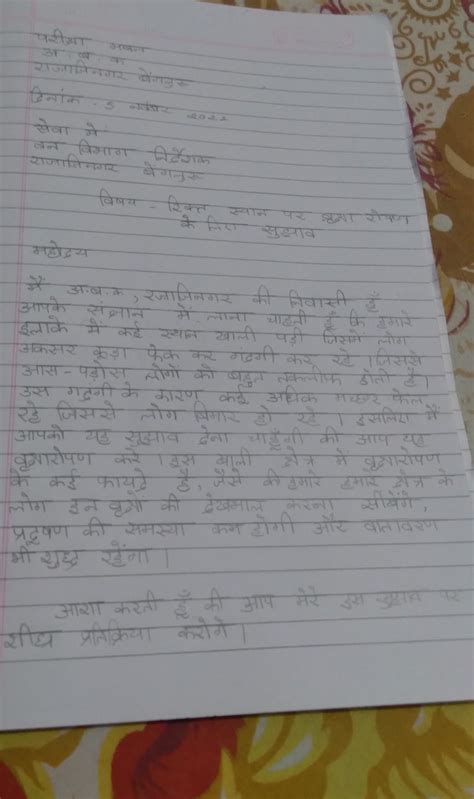 परीक्षा भवन
अ. ब. क
राजाजिनगर बेंगलुरु
दिनांक - 5 नवंबर 2022
सेवा में
वन विभाग निर्देशक
राजाजिनगर बेंगलुरु
विषय - रिक्त स्थान पर वृक्षा रोपण
के लिए सुझाव
महोदय
मैं अ.ब.क, रजाजिनगर की निवासी हूँ
आपके संज्ञान में लाना चाहती हूँ कि हमारे
इलाके में कई स्थान खाली पड़ी जिसमे लोग
अकसर कूड़ा फेक कर गंदगी कर रहे । जिससे
आस-पड़ोस लोगों को बहुत तकलीफ होती है।
उस गंदगी के कारण कई अधिक मच्छर फेल
रहे जिससे लोग बिमार हो रहे । इसलिए मैं
आपको यह सुझाव देना चाहूँगी की आप यह
वृक्षारोपण करे । इस खाली क्षेत्र मे वृक्षारोपण
के कई फायदे है, जैसे की हमारे हमारे क्षेत्र के
लोग इन वृक्षो की देखभाल करना सीखेंगे,
प्रदूषण की समस्या कम होगी और वातावरण
भी शुद्ध रहेंगा ।
आशा करती हूँ की आप मेरे इस सुझाव पर
शीघ्र प्रतिक्रिया करोगे ।